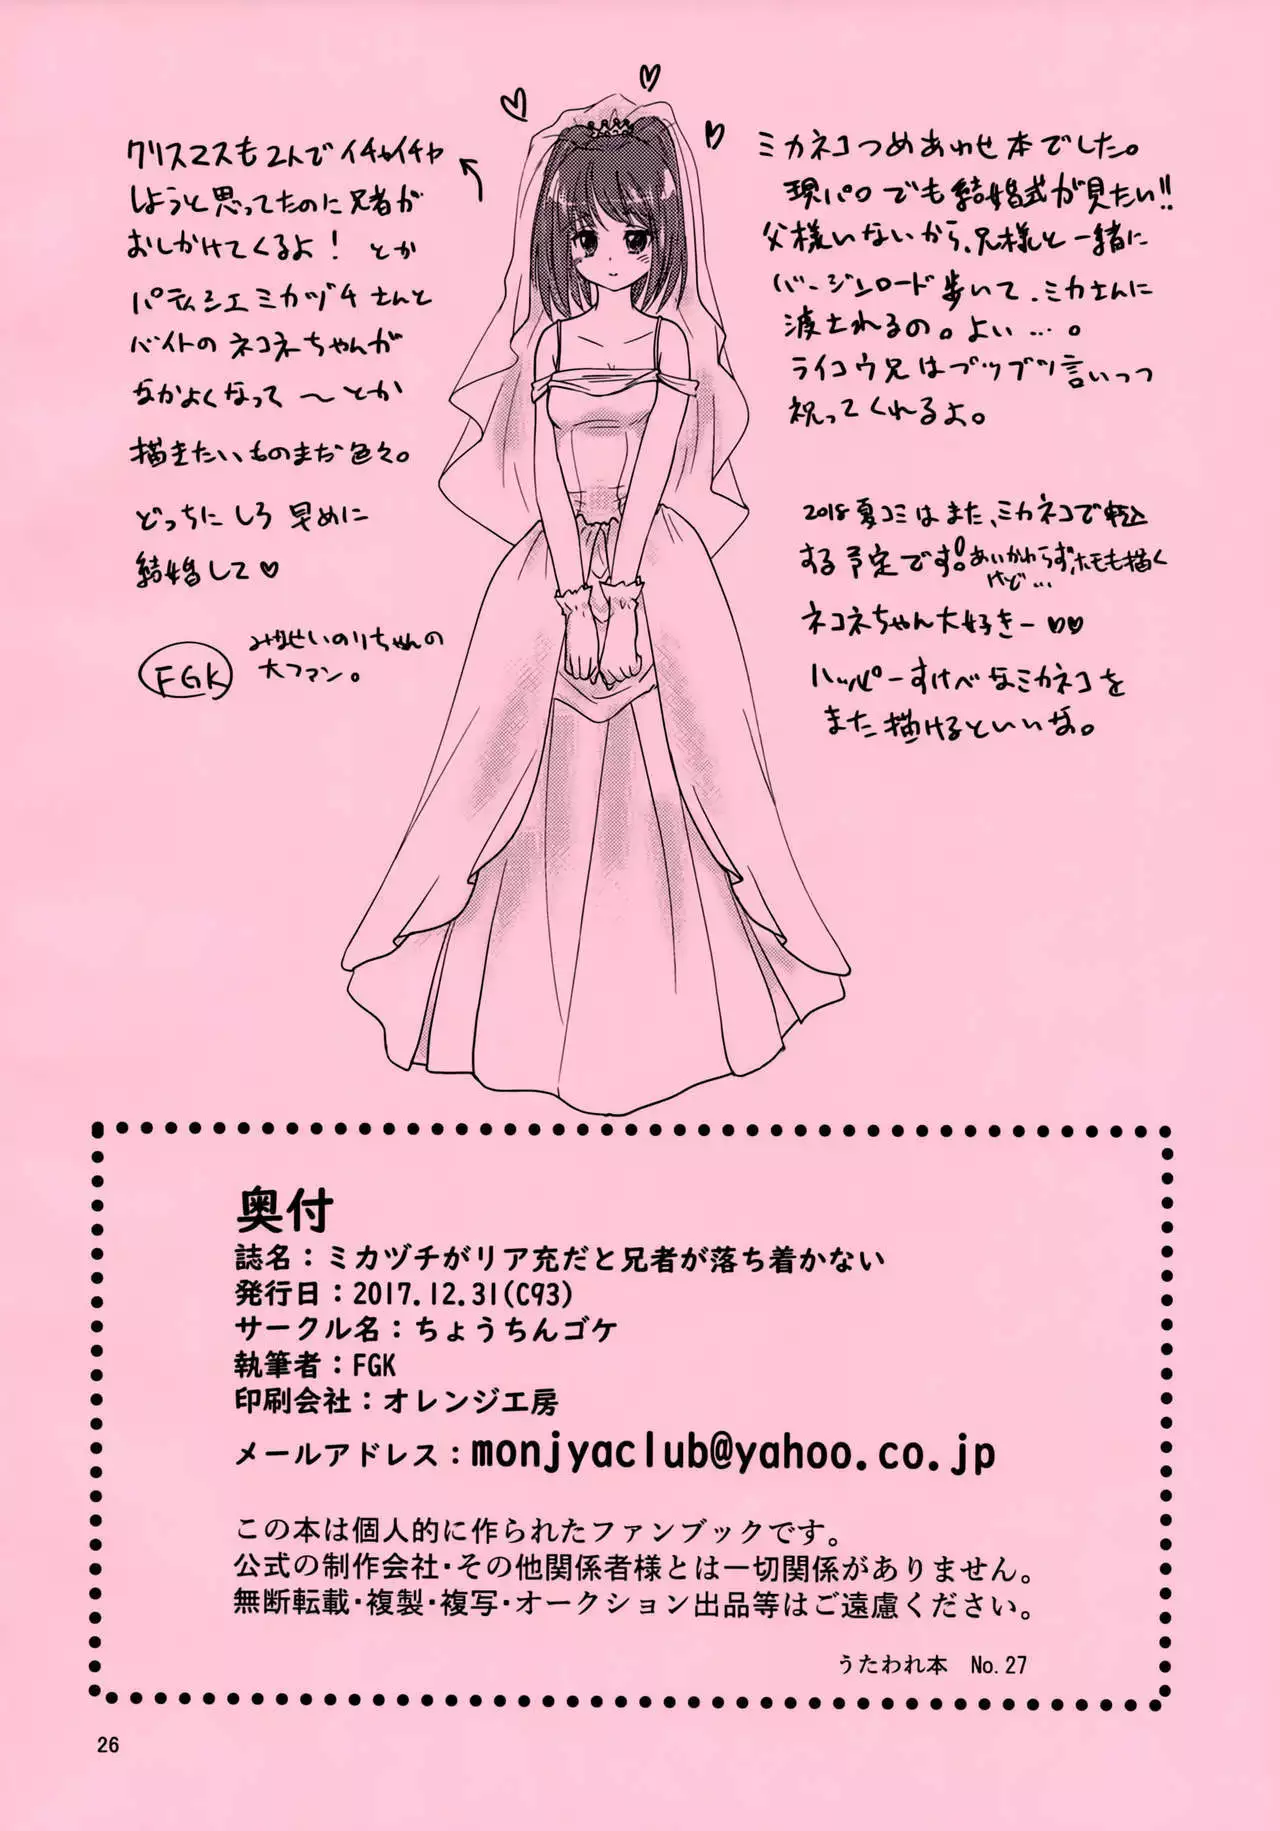 ミカネコつめあわせ本でした。
現パロでも結婚式が見たい!!
父様いないから、兄様と一緒に
バージンロード歩いて、ミカさんに
渡されるの。よい…。
ライコウ兄はブツブツ言いつつ
祝ってくれるよ。
2018夏コミはまた、ミカネコで申込
する予定です!あいかわらず、ホモも描く
けど…
ネコネちゃん大好きー♡♡
ハッピーすけべなミカネコを
また描けるといいな。
クリスマスも2人でイチャイチャ
しようと思ってたのに兄者が
おしかけてくるよ!とか
パティシエミカヅチさんと
バイトのネコネちゃんが
なかよくなって〜とか
描きたいものまだ色々。
どっちにしろ早めに
結婚して♡
FGK
みなせいのりちゃんの
大ファン。
奥付
誌名:ミカヅチがリア充だと兄者が落ち着かない
発行日:2017.12.31(C93)
サークル名:ちょうちんゴケ
執筆者:FGK
印刷会社:オレンジ工房
メールアドレス:monjyaclub@yahoo.co.jp
この本は個人的に作られたファンブックです。
公式の制作会社・その他関係者様とは一切関係がありません。
無断転載・複製・複写・オークション出品等はご遠慮ください。
うたわれ本 No.27
26